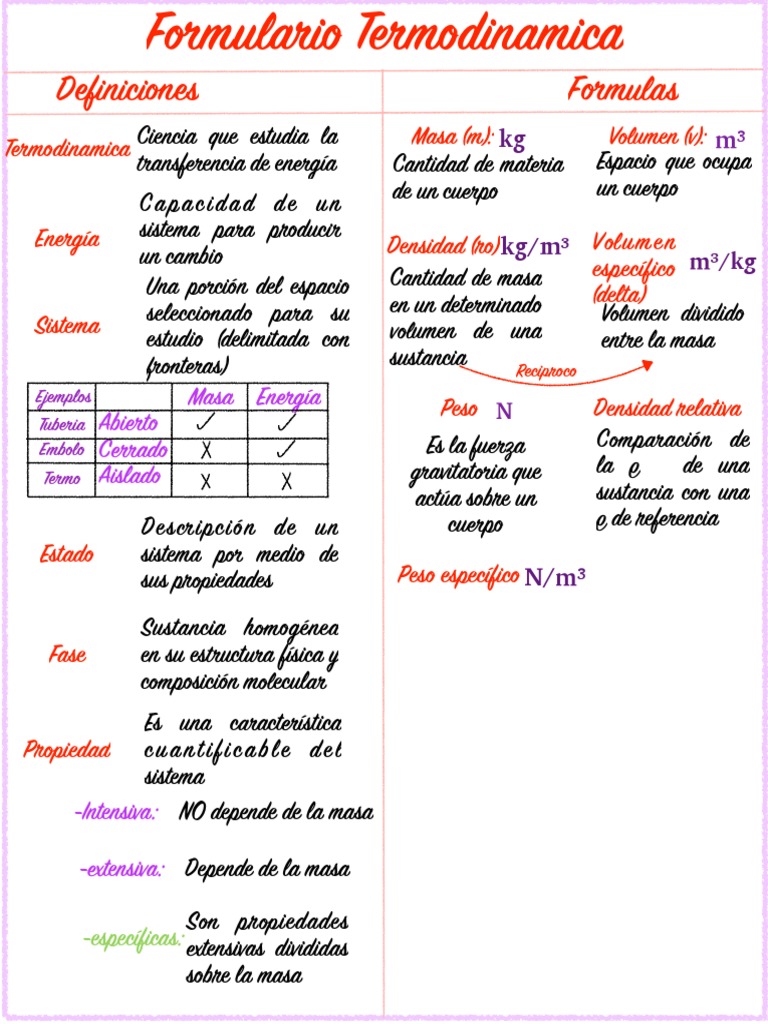 Formulario Termodinamica
Definiciones
Termodinamica
Ciencia que estudia la
transferencia de energía
Energía
Capacidad de un
sistema para producir
un cambio
Sistema
Una porción del espacio
seleccionado para su
estudio (delimitada con
fronteras)
Ejemplos Masa Energía
Tuberia Abierto ✓ ✓
Embolo Cerrado X ✓
Termo Aislado X X
Estado
Descripción de un
sistema por medio de
sus propiedades
Fase
Sustancia homogénea
en su estructura física y
composición molecular
Propiedad
Es una característica
cuantificable del
sistema
-Intensiva: NO depende de la masa
-extensiva: Depende de la masa
-específicas:
Son propiedades
extensivas divididas
sobre la masa
Formulas
Masa (m): kg
Cantidad de materia
de un cuerpo
Volumen (v): m³
Espacio que ocupa
un cuerpo
Densidad (ro) kg/m³
Cantidad de masa
en un determinado
volumen de una
sustancia
Volumen
específico m³/kg
(delta)
Volumen dividido
entre la masa
Reciproco
Peso N
Es la fuerza
gravitatoria que
actúa sobre un
cuerpo
Densidad relativa
Comparación de
la ϱ de una
sustancia con una
ϱ de referencia
Peso específico N/m³